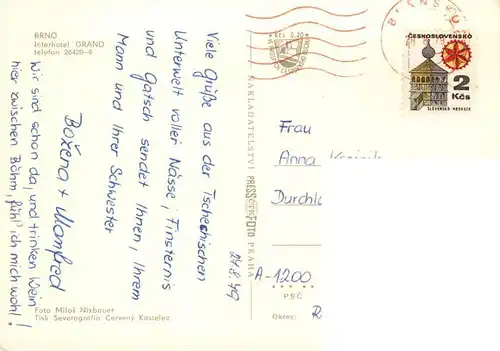 BRNO
Interhotel GRAND
Telefon 26420-9
Viele Grüße aus der Tschechischen
Unterwelt voller Nässe, Finsternis
und Gatsch sendet Ihnen, Ihrem
Mann und Ihrer Schwester
Božena + Manfred
Wir sind schon da, und trinken Wein
hier zwischen Böhm, fühl' ich mich wohl!
Foto Miloš Nixbauer
Tisk Severografia Červený Kostelec
NAKLADATELSTVÍ PRESSFOTO PRAHA
Kčs 0,20
ČESKOSLOVENSKO
2
Kčs
SLOVENSKO-HRONSEK
Frau
Anna
Durchl
A-1200
PSČ
Okres: